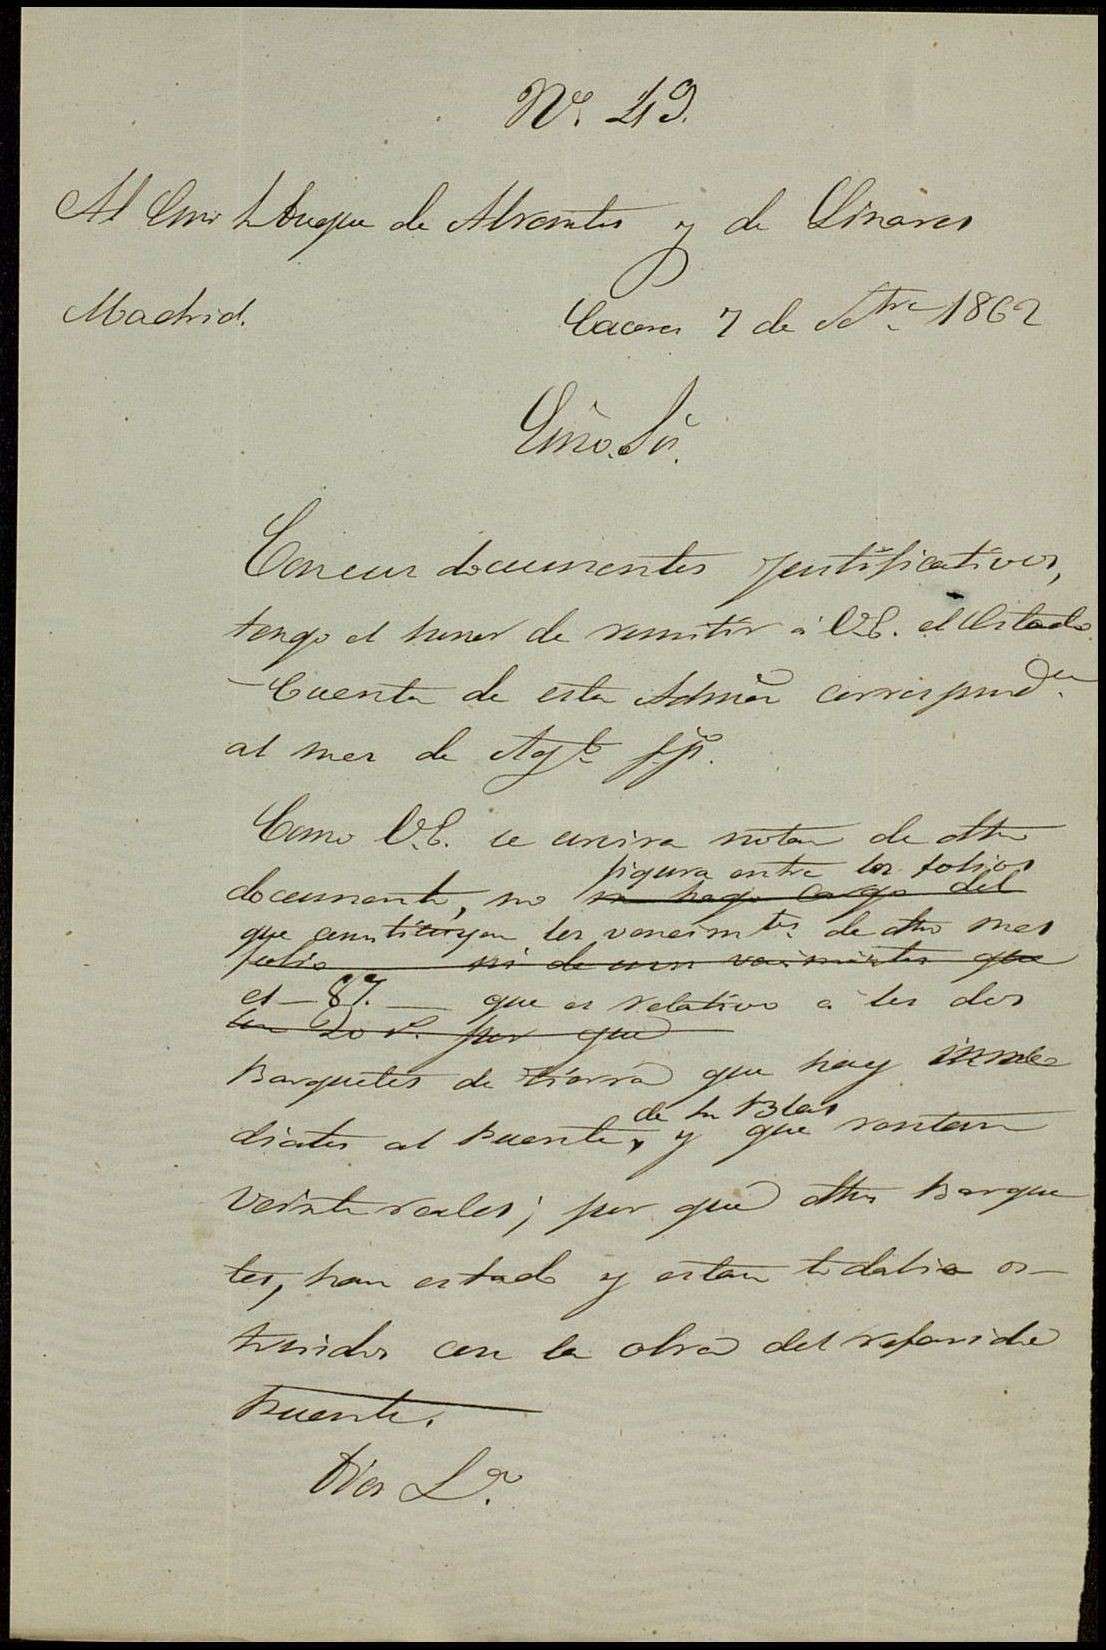 Nº. 49.
Al Exmo S. Duque de Abrantes y de Linares
Madrid.
Caceres 7 de Setre 1862
Exmo. Sór.
Con cur documentos justificativos,
tengo el honor de remitir á V.E. el Estado
- Cuenta de esta Admón correspond.te
al mes de Agto. ppº.
Como V.E. se servira notar de dho
figura entre los folios
documento, no se hago cargo del
que constituyen los vencimtos. de dho mes
folio ni de cuyo vencimiento que
el - 87. - que es relativo a los dos
los 20 r. por que
Barquetes de tierra que hay inme
de Sn Blas
diatos al Puente, y que rentan
veinte reales; por que dhos Barque
tes, han estado y estan todabia os-
truidos con la obra del referido
Puente.
Dios L.ª